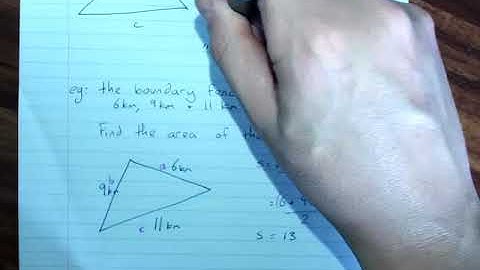 c
eg: the boundary
6km, 9km + 11 km
Find the area of the
a 6km
b
9km
c 11km
s =
2
s = 13